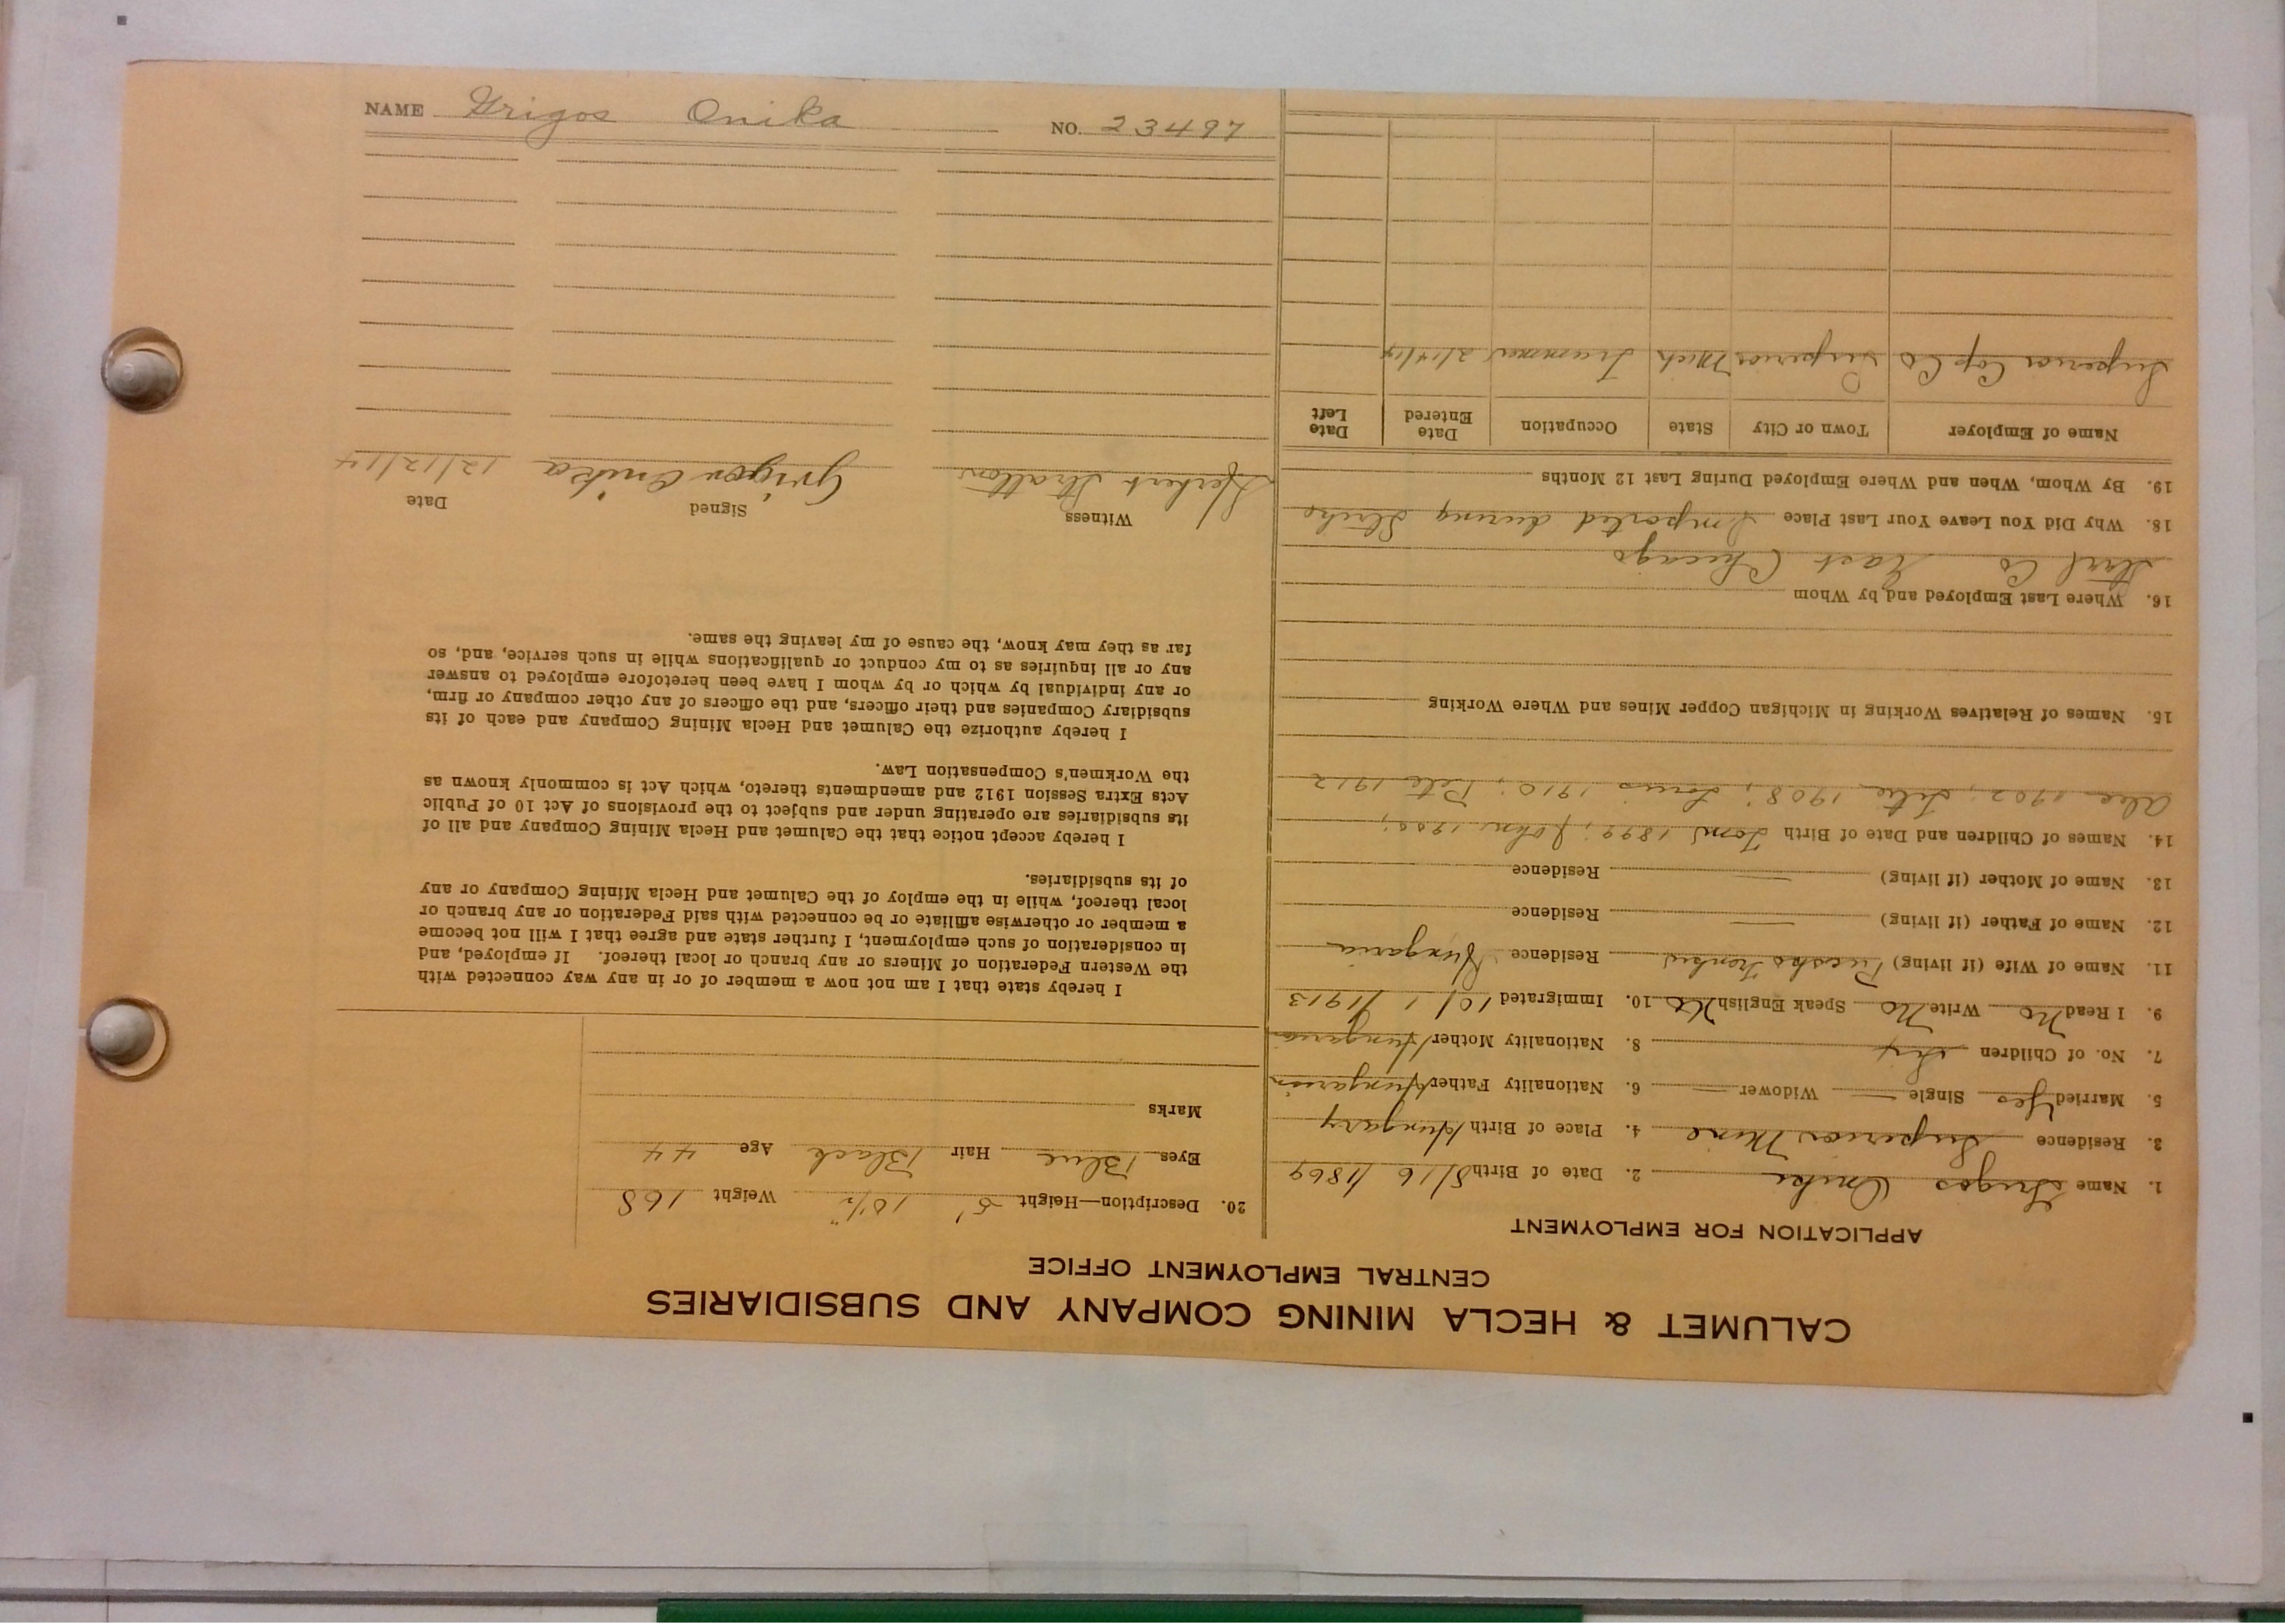 NAME Grigos Onika NO. 23497
CALUMET & HECLA MINING COMPANY AND SUBSIDIARIES
CENTRAL EMPLOYMENT OFFICE
APPLICATION FOR EMPLOYMENT
1. Name Grigos Onika 2. Date of Birth 8/16/1869
3. Residence Superior Mine 4. Place of Birth Hungary
5. Married Yes Single — Widower — 6. Nationality Father Hungarian
7. No. of Children Six 8. Nationality Mother Hungarian
9. I Read No Write No Speak English No 10. Immigrated 10/1/1913
11. Name of Wife (if living) Residence Hungaria
12. Name of Father (if living) — Residence
13. Name of Mother (if living) — Residence
14. Names of Children and Date of Birth Tom 1899; John 1900;
Alec 1902; 1908; Louis 1910; Pete 1912
15. Names of Relatives Working in Michigan Copper Mines and Where Working
16. Where Last Employed and by Whom
Steel Co East Chicago
18. Why Did You Leave Your Last Place Imported during Strike
19. By Whom, When and Where Employed During Last 12 Months
Name of Employer Town or City State Occupation Date Entered Date Left
Superior Cop Co Superior Mich Trammer 2/14/14
20. Description—Height 5' 10½" Weight 168
Eyes Blue Hair Black Age 44
Marks
I hereby state that I am not now a member of or in any way connected with
the Western Federation of Miners or any branch or local thereof. If employed, and
in consideration of such employment, I further state and agree that I will not become
a member or otherwise affiliate or be connected with said Federation or any branch or
local thereof, while in the employ of the Calumet and Hecla Mining Company or any
of its subsidiaries.
I hereby accept notice that the Calumet and Hecla Mining Company and all of
its subsidiaries are operating under and subject to the provisions of Act 10 of Public
Acts Extra Session 1912 and amendments thereto, which Act is commonly known as
the Workmen's Compensation Law.
I hereby authorize the Calumet and Hecla Mining Company and each of its
subsidiary Companies and their officers, and the officers of any other company or firm,
or any individual by which or by whom I have been heretofore employed to answer
any or all inquiries as to my conduct or qualifications while in such service, and, so
far as they may know, the cause of my leaving the same.
Witness Signed Date
Herbert Stratton Grigos Onika 12/12/14